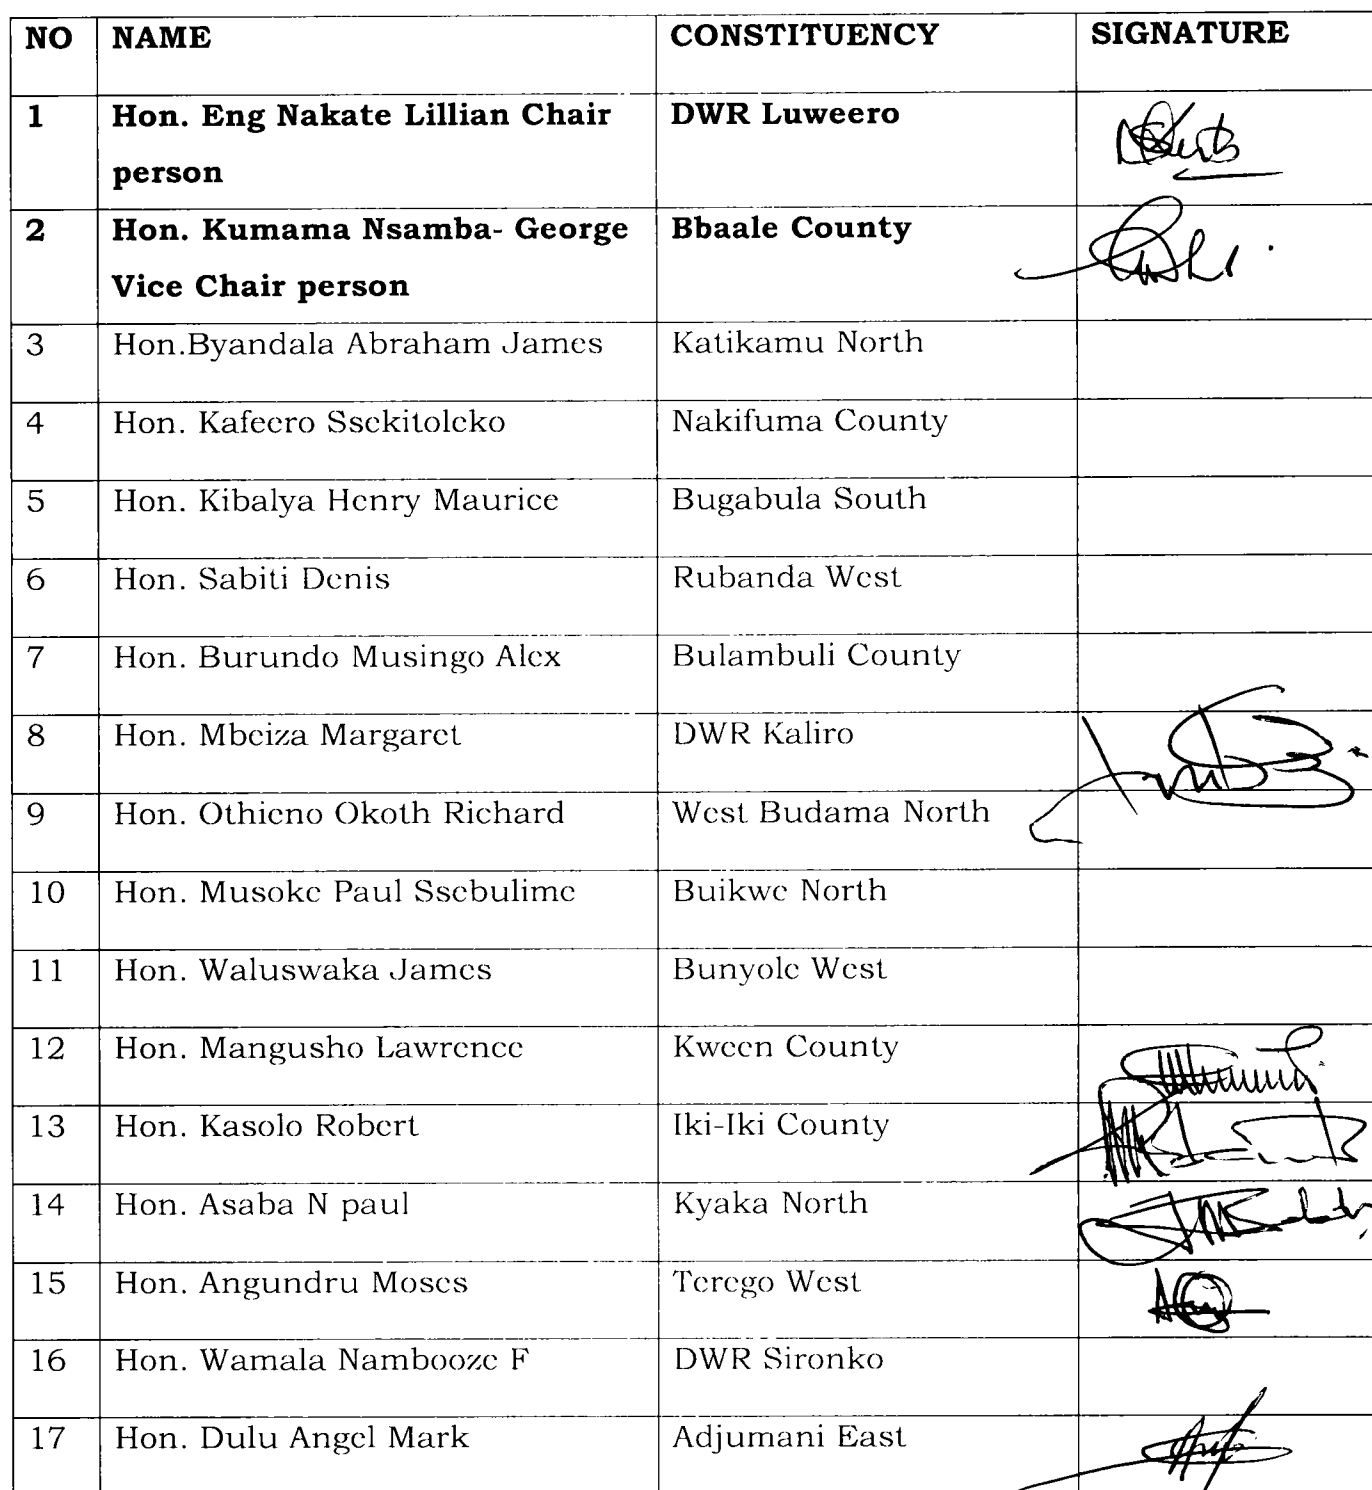 NO NAME CONSTITUENCY SIGNATURE
1 Hon. Eng Nakate Lillian Chair person DWR Luweero
2 Hon. Kumama Nsamba- George Vice Chair person Bbaale County
3 Hon.Byandala Abraham James Katikamu North
4 Hon. Kafeero Ssekitoleko Nakifuma County
5 Hon. Kibalya Henry Maurice Bugabula South
6 Hon. Sabiti Denis Rubanda West
7 Hon. Burundo Musingo Alex Bulambuli County
8 Hon. Mbeiza Margaret DWR Kaliro
9 Hon. Othieno Okoth Richard West Budama North
10 Hon. Musoke Paul Ssebulime Buikwe North
11 Hon. Waluswaka James Bunyole West
12 Hon. Mangusho Lawrence Kween County
13 Hon. Kasolo Robert Iki-Iki County
14 Hon. Asaba N paul Kyaka North
15 Hon. Angundru Moses Terego West
16 Hon. Wamala Nambooze F DWR Sironko
17 Hon. Dulu Angel Mark Adjumani East